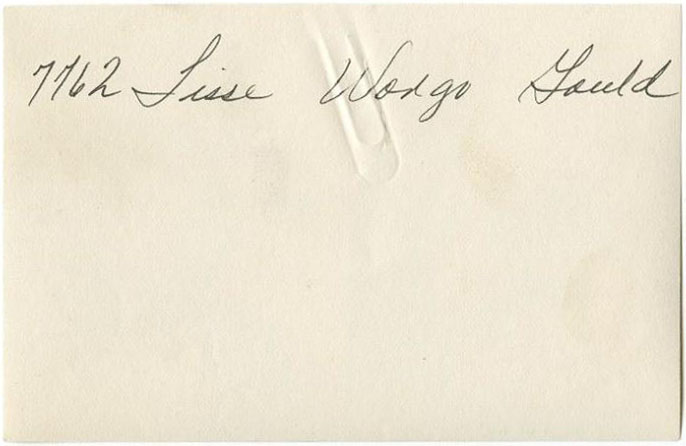 7762 Lisse Wongo Gould